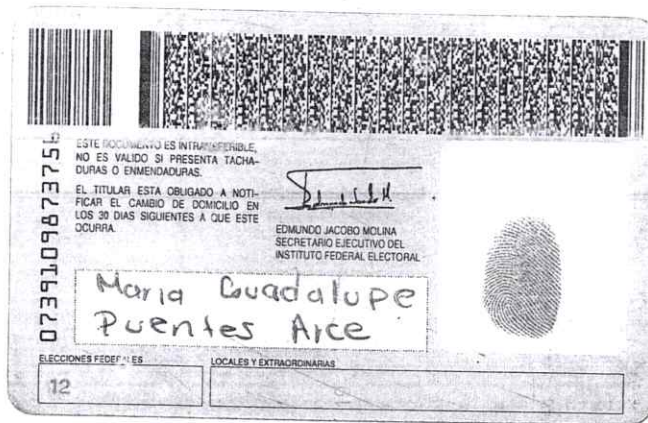 0739109873756
ESTE DOCUMENTO ES INTRANSFERIBLE,
NO ES VALIDO SI PRESENTA TACHA-
DURAS O ENMENDADURAS.
EL TITULAR ESTA OBLIGADO A NOTI-
FICAR EL CAMBIO DE DOMICILIO EN
LOS 30 DIAS SIGUIENTES A QUE ESTE
OCURRA.
EDMUNDO JACOBO MOLINA
SECRETARIO EJECUTIVO DEL
INSTITUTO FEDERAL ELECTORAL
Maria Guadalupe
Puentes Arce
ELECCIONES FEDERALES
LOCALES Y EXTRAORDINARIAS
12